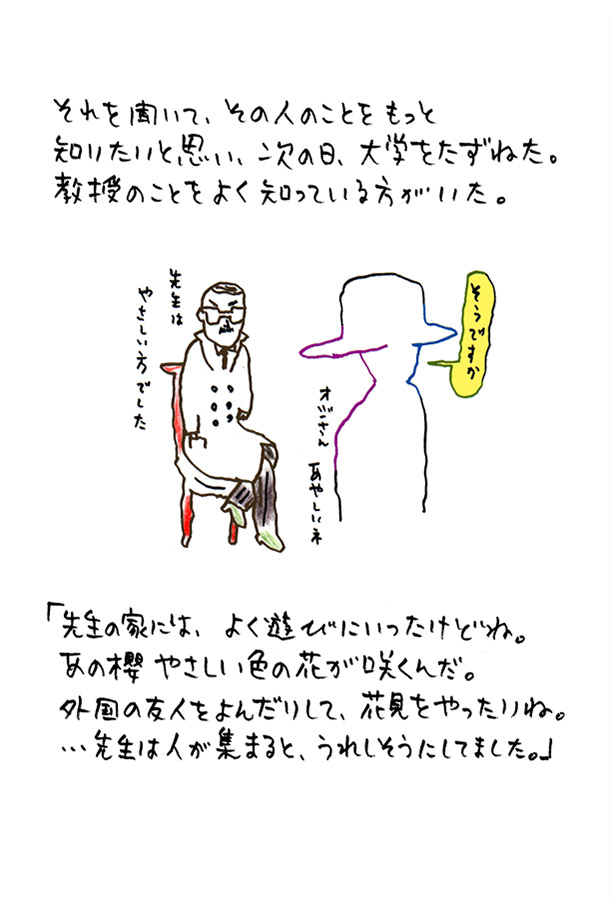 それを聞いて、その人のことをもっと
知りたいと思い、次の日、大学をたずねた。
教授のことをよく知っている方がいた。
先生は
やさしい方でした
そうですか
オジーさん
あやしいネ
「先生の家には、よく遊びにいったけどね。
あの櫻やさしい色の花が咲くんだ。
外国の友人をよんだりして、花見をやったりね。
…先生は人が集まると、うれしそうにしてました。」